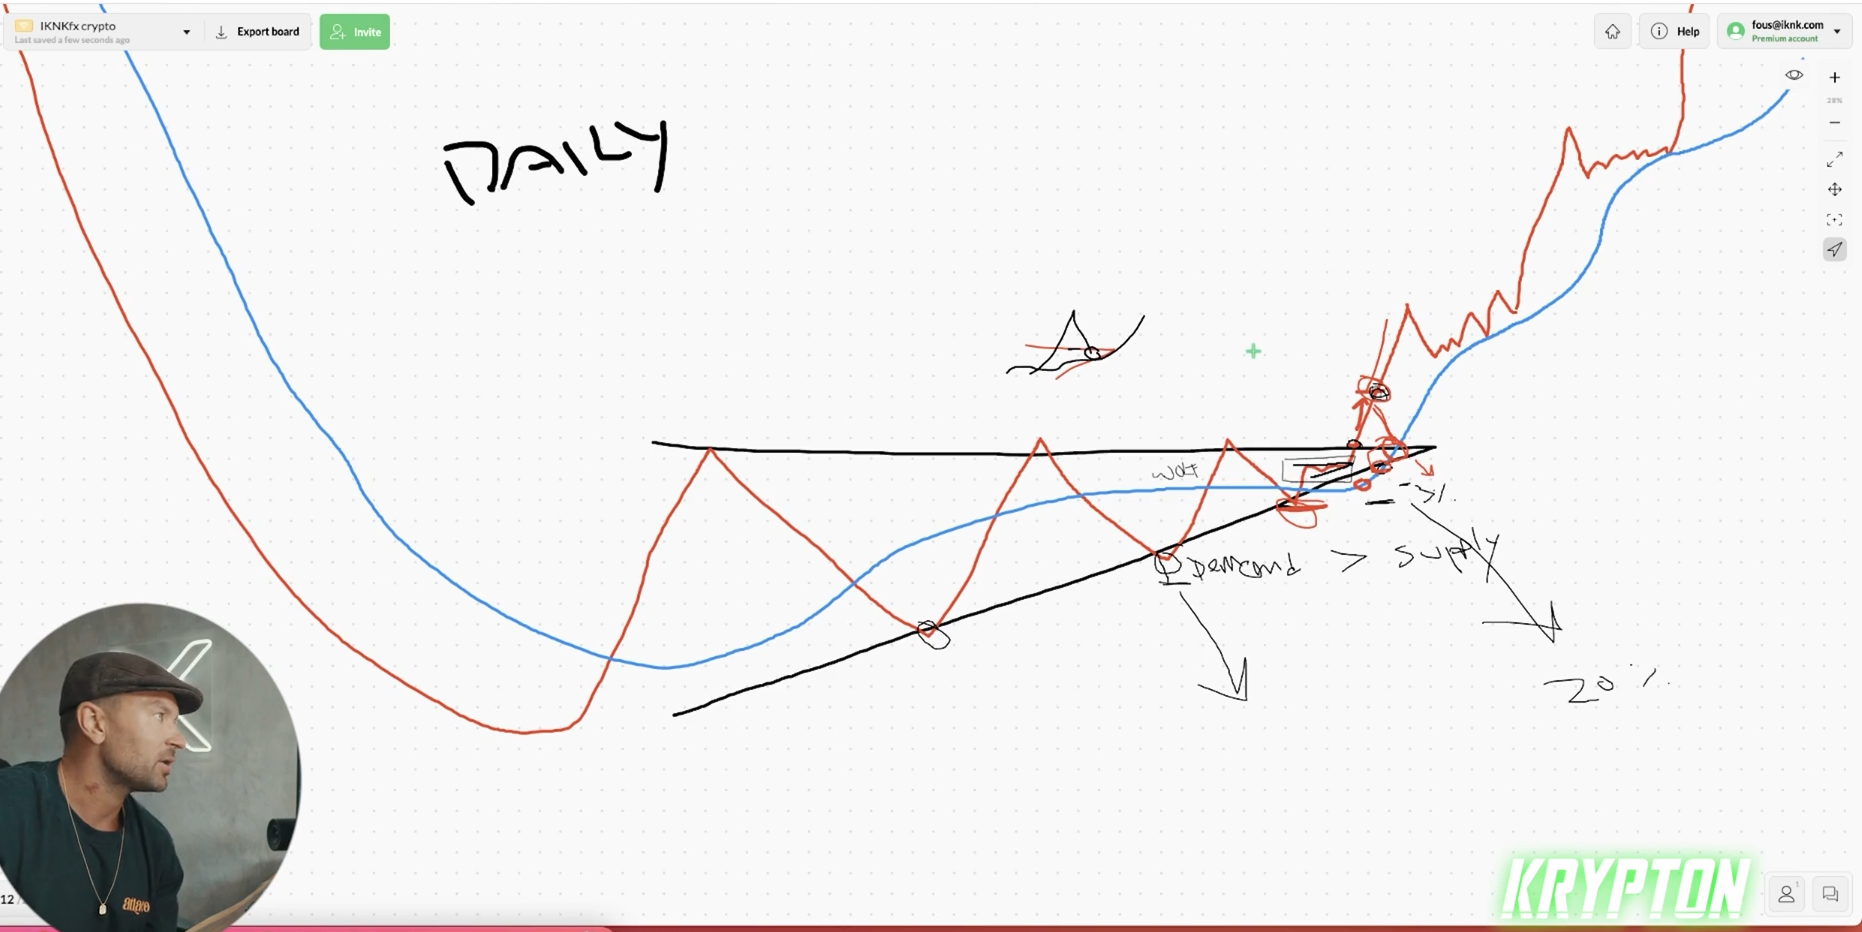 IKNKfx crypto
Last saved a few seconds ago
Export board
Invite
Help
fous@iknk.com
Premium account
28%
DAILY
Demand > supply
20%
12
KRYPTON